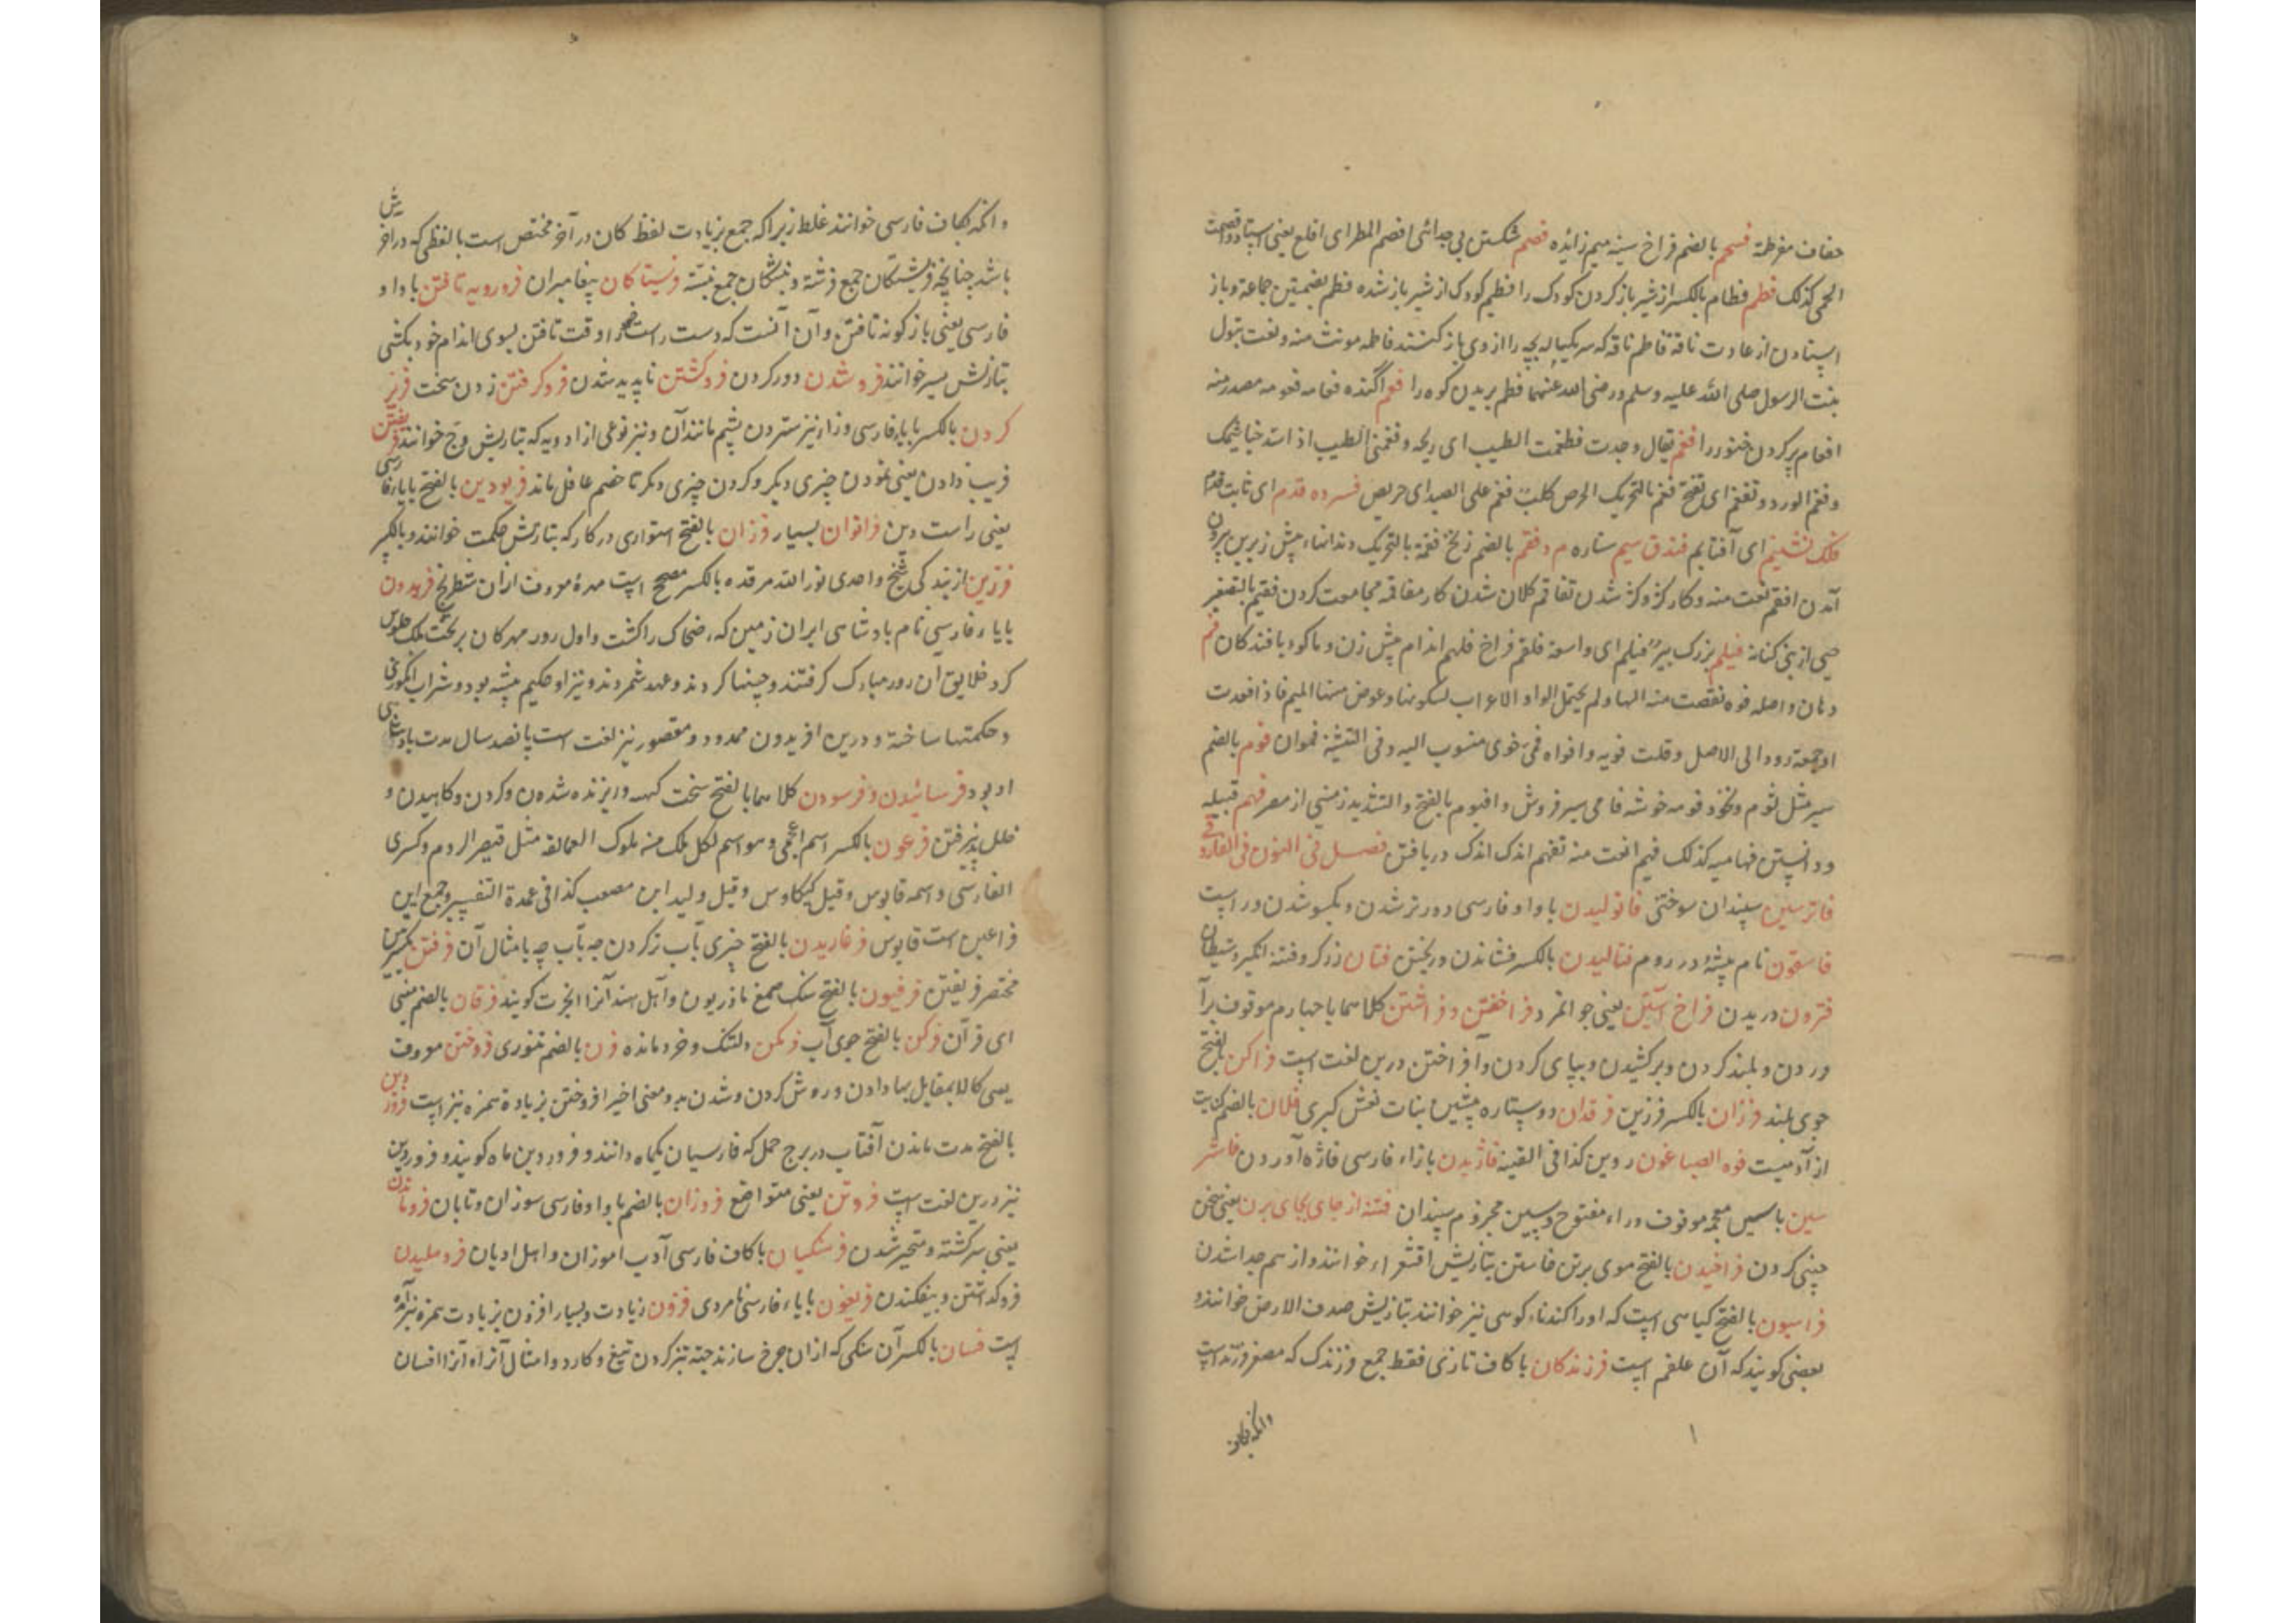 فسحم بالضم فراخ سینه میم زائده فصم شکستن بی جدائی افصم المطر ای اقلع یعنی
الحمی کذلک فطم فطام بالکسر از شیر باز کردن کودک را فطیم کودک از شیر باز شده فطم بضمتین جماعة و باز
ایستادن از عادت ناقة فاطم ناقه که یکساله بچه را از وی باز کنند فاطمه مونث منه و نعت بتول
بنت الرسول صلی الله علیه وسلم و رضی الله عنهما فطم بریدن کوه را فعم آگنده فعامه فعومه مصدر منه
افعام پر کردن خنور را فغم یقال وجدت الطیب ای ریحه و فغمنی الطیب اذا سد خیاشیمک
و فغم الورد و تفغم ای تفتح فغم بالتحریک الحرص کلب فغم علی الصید ای حریص فسرده قدم ای ثابت قدم
فلک نشینم ای آفتابم فندق سیم ستاره فقم بالضم زنخ فقم بالتحریک دندانهاء پیش زیرین بیرون
آمدن افقم نعت منه و کار کژ و کژ شدن تفاقم کلان شدن کار مفاقمه مجامعت کردن فقیم بالتصغیر
حیی از بنی کنانة فیلم بزرگ بئر فیلم ای واسعة فلقم فراخ فلهم اندام پیش زن و ماکو بافندکان فم
دهان و اصله فوه نقصت منه الها و لم یحتمل الواو الاعراب لسکونها و عوض منها المیم فاذا
او جمعته رد الی الاصل و قلت فویه و افواه فمی فوی منسوب الیه و فی التثنیة فموان فوم بالضم
سیر مثل ثوم و نخود فومه خوشه فامی سیر فروش و افیوم بالفتح و التشدید زمینی از مصر فهم قبیله
و دانستن فهامیه کذلک فهیم نعت منه تفهم اندک اندک دریافتن فصل فی النون فی الفارسی
فاترسین سپندان سوختی فاتولیدن با واو فارسی دورتر شدن و یکسو شدن
فاسقون نام بیشه در روم فتالیدن بالکسر فشاندن و ریختن فتان زرکر و فتنه انگیز و شیطان
فتردن دریدن فراخ آستین یعنی جوانمرد فراختن و فراشتن کلاهما با چهارم موقوف برآ
وردن و بلند کردن و برکشیدن و بپای کردن و آفراختن درین لغت است فراکن بالفتح
جوی بلند فرزان بالکسر فرزین فرقدان دو ستاره پیشین بنات نعش کبری فلان بالضم کنایت
از آدمیست فوه الصباغون روین کذا فی القنیة فاژیدن بازاء فارسی فاژه آوردن فاشر
سین با سین معجمه موقوف و راء مفتوح و سین مجزوم سپندان فتنه از جای بجای بردن یعنی سخن
چینی کردن فراخیدن بالفتح موی برتن خاستن بتازیش اقشعرار خوانند و از هم جدا شدن
فراسیون بالفتح کیاهی است که او را کندناء کوهی نیز خوانند بتازیش صدف الارض خوانند و
بعضی کویند که آن علقم است فرزندکان با کاف تازی فقط جمع فرزندک که مصغر فرزند است
وانکه بکاف
وانکه بکاف فارسی خوانند غلط زیرا که جمع بزیادت لفظ کان در آخر مختص است بالفظی که در آخرش
باشد چنانچه فرشتکان جمع فرشته و بنشکان جمع فرستاکان پیغامبران فرورویه تافتن با واو
فارسی یعنی بازکونه تافتن و آن آنست که دست راست وقت تافتن بسوی اندام خود بکشی
بتازیش یسر خوانند فروشدن دور کردن فروکشتن ناپدید شدن فروکرفتن زدن سخت فریز
کردن بالکسر بایاء فارسی و زاء نیز ستردن پشم مانند آن و نیز نوعی از ادویه که بتازیش وج خوانند فریفتن
فریب دادن یعنی نمودن چیزی دیکر و کردن چیزی دیکر تا خصم غافل ماند فریودین بالفتح بایاء فارسی
یعنی راست دین فراوان بسیار فرزان بالفتح استواری در کار که بتازیش حکمت خوانند و بالکسر
فرزین از بندکی شیخ واحدی نور الله مرقده بالکسر مصحح است مهرهٔ معروف ازان شطرنج فریدون
بایاء فارسی نام بادشاهی ایران زمین که ضحاک را کشت و اول روز مهرکان بر تخت ملک جلوس
کرد خلایق آن روز مبارک کرفتند و جشنها کردند و عید شمردند و نیز او حکیم پیشه بود و شراب انکوری
و حکمتها ساخته و درین افریدون ممدود و مقصور نیز لغت است پانصد سال مدت بادشاهی
او بود فرسائیدن و فرسودن کلاهما بالفتح سخت کهنه و ریزنده شدن و کردن و کاهیدن و
خلل پذیرفتن فرعون بالکسر اسم اعجمی و هو اسم لکل ملک من ملوک العمالقة مثل قیصر الروم و کسری
الفارسی و اسمه قابوس و قیل کیکاوس و قیل ولید ابن مصعب کذا فی عمدة التفسیر و جمع این
فراعین است قابوس فرغاریدن بالفتح چیزی بآب تر کردن چه بآب چه بامثال آن فرفتن بکسرتین
مختصر فریفتن فرفیون بالفتح سنک صمغ ماذریون و اهل هند آنرا انجرت کویند فرقان بالضم نبی
ای قرآن فرکن بالفتح جوی آب فرمکن دلتنک و فرومانده فرن بالضم تنوری فروختن معروف
یعنی کالا بمقابل بها دادن و روشن کردن و شدن بدو معنی اخیر افروختن بزیادة همزه نیز است فروردین
بالفتح مدت ماندن آفتاب در برج حمل که فارسیان یکماه دانند و فروردین ماه کویند و فرورین
نیز درین لغت است فروتن یعنی متواضع فروزان بالضم با واو فارسی سوزان و تابان فروماندن
یعنی سرکشته و متحیر شدن فرهنکیان با کاف فارسی آدب اموزان و اهل ادیان فروهلیدن
فروکداشتن و بیفکندن فریغون بایاء فارسی نامردی فزون زیادت و بسیار افزون بزیادت همزه نیز آمده
است فسان بالکسر آن سنکی که ازان چرخ سازند جهة تیز کردن تیغ و کارد و امثال آنرا افسان